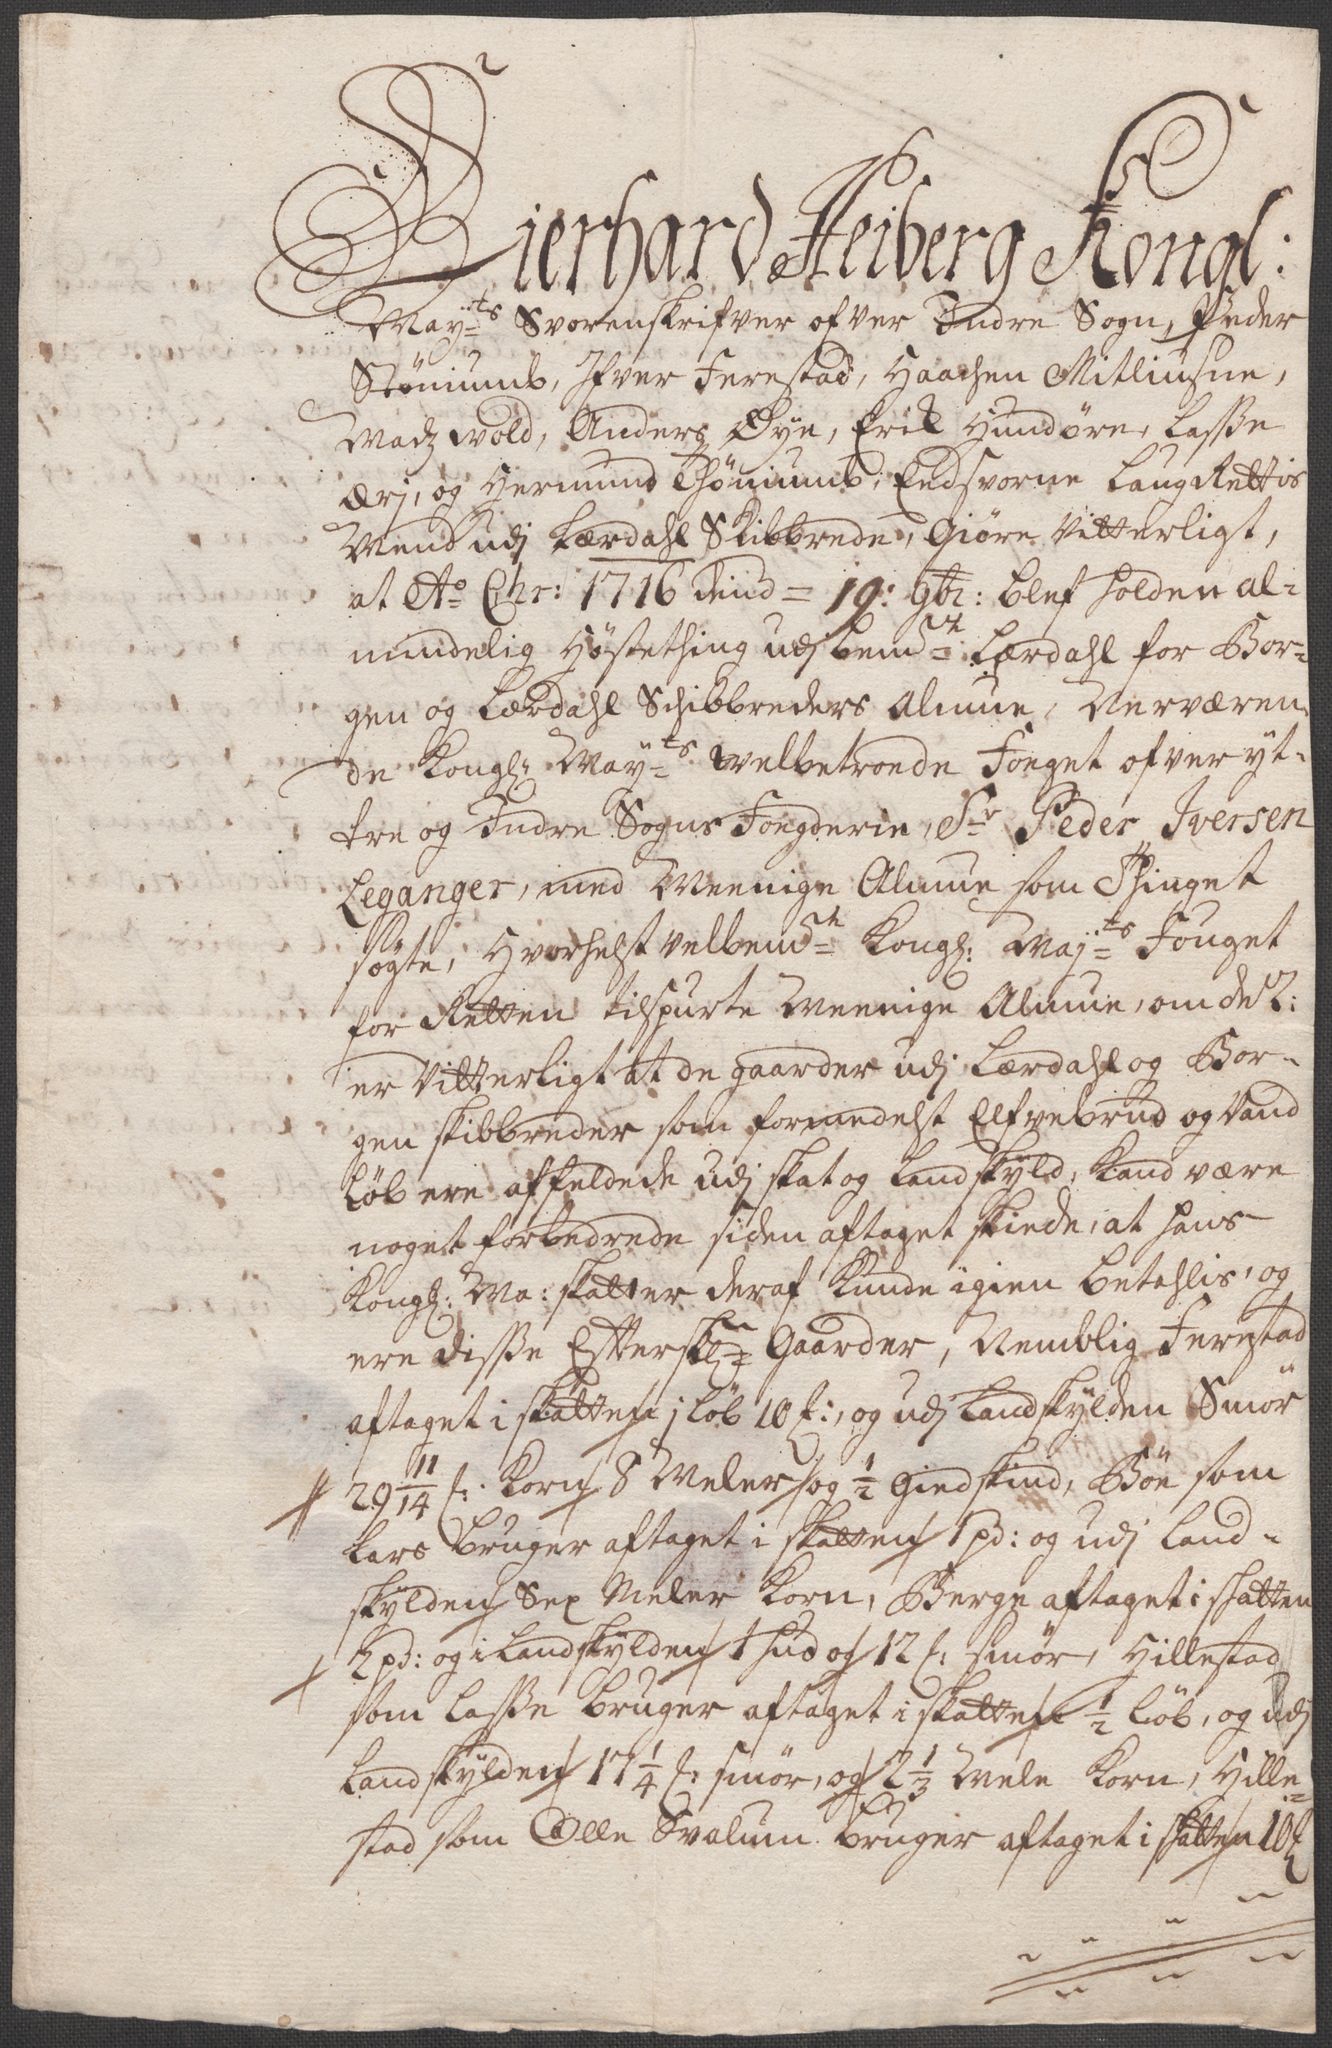 Gierhard Heiberg Kongl:
May:ts Svorenskrifver ofver Indre Sogn, Peder
Støniumb, Ifver Ferestad, Haachen Mitliusne,
Madz wold, Anders Øye, Erik Hundøre, Lasse
Æri, og Hermund Thøniumb, Eedsvorne LaugRettis
Mend udj Lærdahl Skibbrede, Giøre Vitterligt,
at Ao Chr: 1716 dend = 19: 9br: blef holden al-
mindelig Høstething udj bemte Lærdahl for Bor-
gen og Lærdahl Schibbreders Almue, Nerværen-
de Kongl: May:ts welbetroede Fouget ofver yt-
tre og Indre Sogns Fougderie, Sr Peder Iversen
Leganger, med Meenige Almue som Thinget
søgte, Hvorhelst velbemte Kongl: May:ts Fouget
for Retten tilspurte Meenige Almue, om dem:
er Vitterligt at de gaarder udj Lærdahl og Bor-
gen skibbreder som formedelst Elfvebrud og Vand
løb ere affeldede udj skat og Landskyld, kand være
noget forbedrede siden aftaget skiede, at hans
Kongl: Ma: skatter deraf kunde igien betahlis, og
ere disse Efterskne Gaarder, Nemblig Ferestad
aftaget i skatten 1 løb 10 ℔:, og udj Landskylden Smør
29 11/14 ℔: Korn 8 Meler og 1/2 Giedskind, Bøe som
Lars bruger aftaget i skatten 1 pd: og udj Land-
skylden Sex Meler Korn, Berge aftaget i skatten
2 pd: og i Landskylden 1 hud og 12 ℔: smør, Hillestad
som Lasse bruger aftaget i skatten 1/2 løb, og udj
Landskylden 17 1/4 ℔: smør, og 2 1/3 Mele Korn, Hille-
stad som Olle Svalum bruger aftaget i skatten 10 ℔